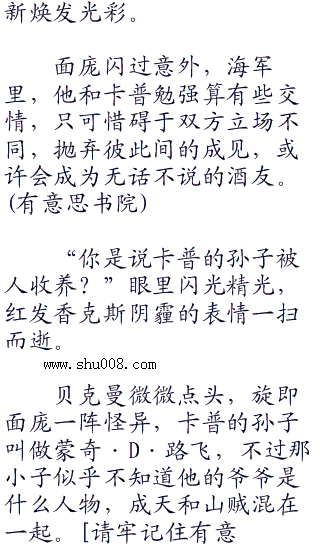 新焕发光彩。
面庞闪过意外，海军
里，他和卡普勉强算有些交
情，只可惜碍于双方立场不
同，抛弃彼此间的成见，或
许会成为无话不说的酒友。
(有意思书院)
“你是说卡普的孙子被
人收养？”眼里闪光精光，
红发香克斯阴霾的表情一扫
而逝。
www.shu008.com
贝克曼微微点头，旋即
面庞一阵怪异，卡普的孙子
叫做蒙奇·D·路飞，不过那
小子似乎不知道他的爷爷是
什么人物，成天和山贼混在
一起。[请牢记住有意